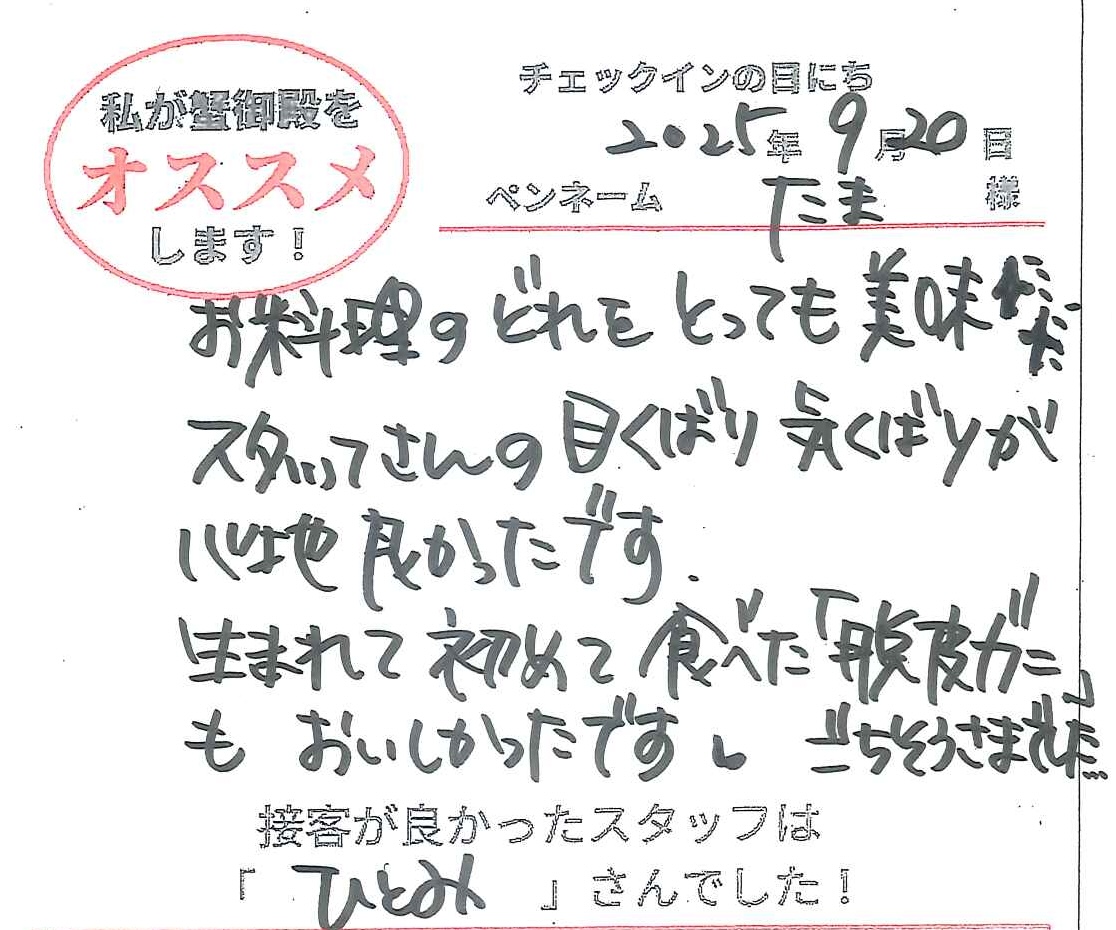 私が蟹御殿を
オススメ
します！
チェックインの日にち
2025年 9月20日
ペンネーム たま 様
お料理のどれをとっても美味
スタッフさんの目くばり気くばりが
心地良かったです.
生まれて初めて食べた「脱皮ガニ」
も おいしかったです。ごちそうさまでした
接客が良かったスタッフは
「 ひとみ 」さんでした！